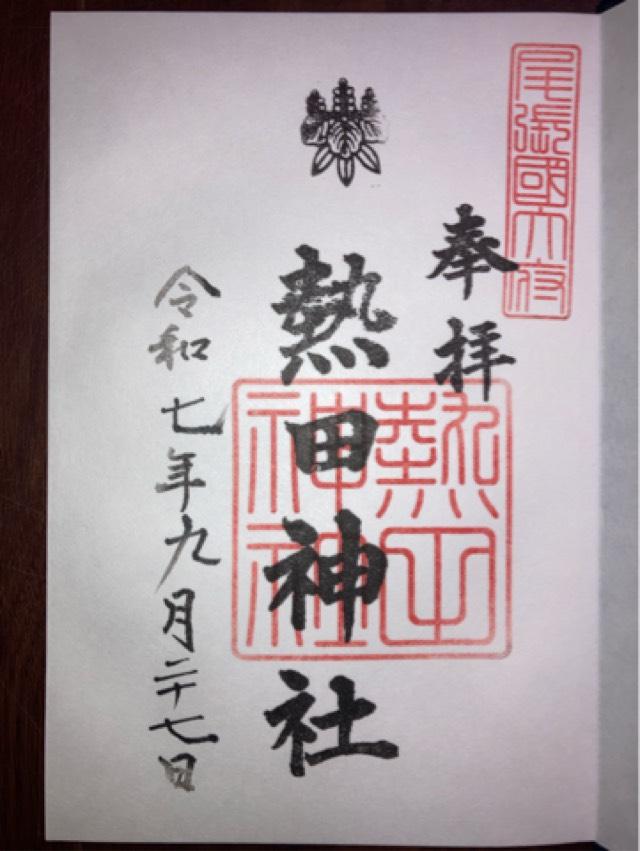 尾張國大府
奉拝
熱田神社
熱田
神社
令和七年九月二十七日